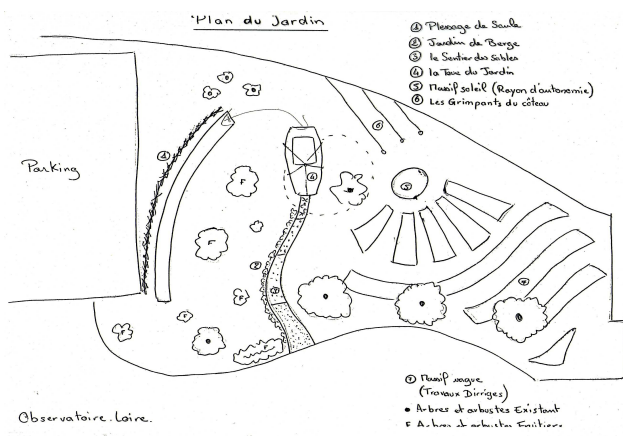 Plan du Jardin
① Plessage de Saule
② Jardin de Berge
③ le Sentier des Sables
④ la Toue du Jardin
⑤ Massif soleil (Rayon d'autonomie)
⑥ Les Grimpants du côteau
Parking
⑦ Massif vague
(Travaux Dirriges)
• Arbres et arbustes Existant
F Arbres et arbustes Fruitiers
Observatoire. Loire.